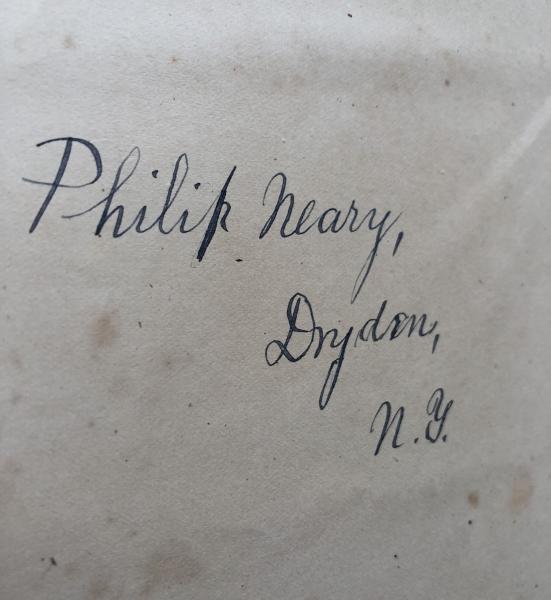 Philip Neary,
Dryden,
N.Y.